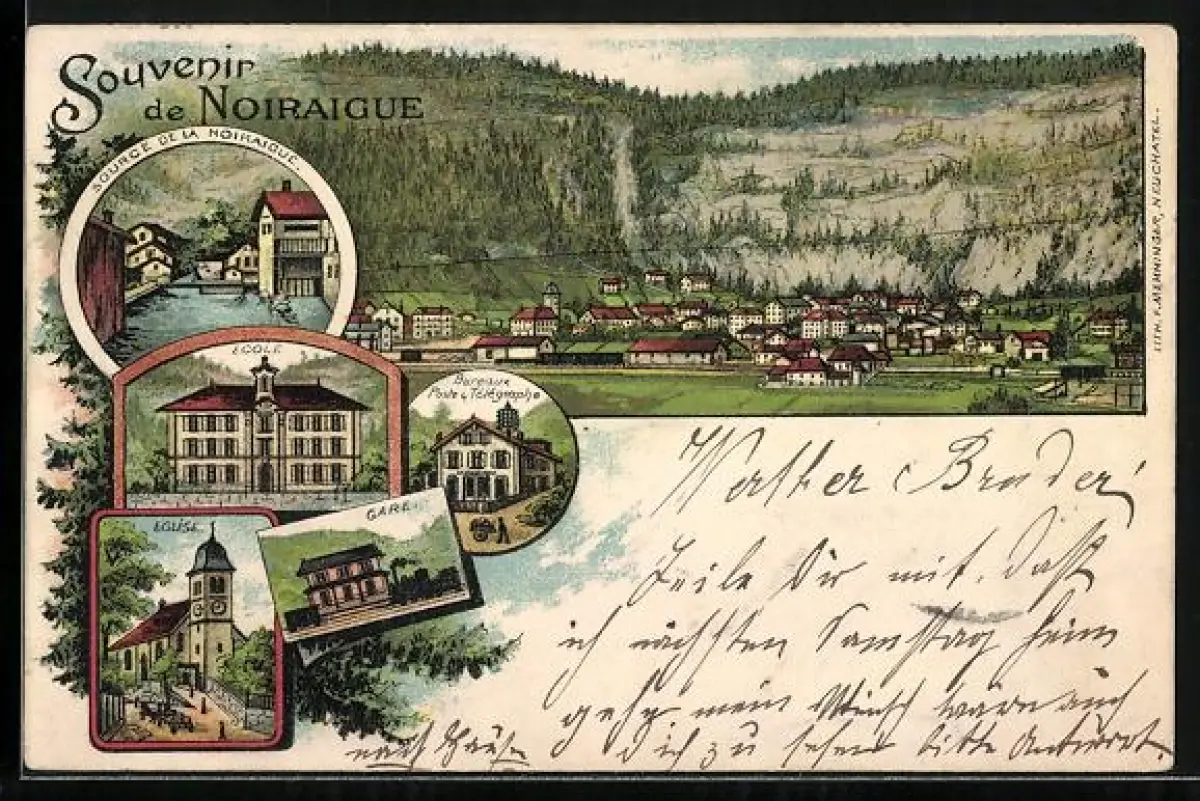 Souvenir
de NOIRAIGUE
SOURCE DE LA NOIRAIGUE.
ECOLE
Bureaux
Poste & Télégraphe
EGLISE
GARE.
LITH. F. MEMMINGER, NEUCHATEL.
Werther Bruder!
Teile Dir mit, daß
ich nächsten Samstag heim
gehe mein Wunsch wäre auch
dich zu sehen bitte Antwort.
nach Hause